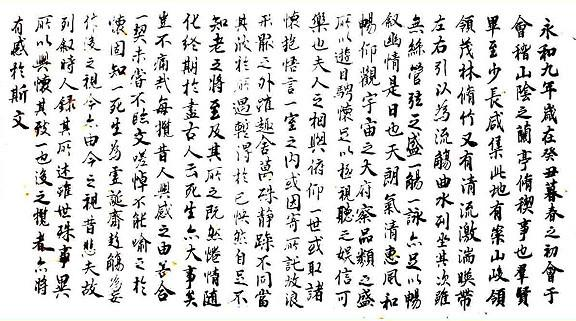 永和九年歲在癸丑暮春之初會于
會稽山陰之蘭亭脩稧事也羣賢
畢至少長咸集此地有崇山峻領
領茂林脩竹又有清流激湍暎帶
左右引以為流觴曲水列坐其次雖
無絲管弦之盛一觴一詠亦足以暢
叙幽情是日也天朗氣清惠風和
暢仰觀宇宙之大俯察品類之盛
所以遊目騁懷足以極視聽之娛信可
樂也夫人之相與俯仰一世或取諸
懷抱悟言一室之內或因寄所託放浪
形骸之外雖趣舍萬殊靜躁不同當
其欣於所遇輙得於己怏然自足不
知老之將至及其所之既然惓情隨
化終期於盡古人云死生亦大事矣
豈不痛哉每攬昔人興感之由若合
一契未嘗不臨文嗟悼不能喻之於
懷固知一死生為虛誕齊彭殤為妄
作後之視今亦由今之視昔悲夫故
列叙時人錄其所述雖世殊事異
所以興懷其致一也後之攬者亦將
有感於斯文